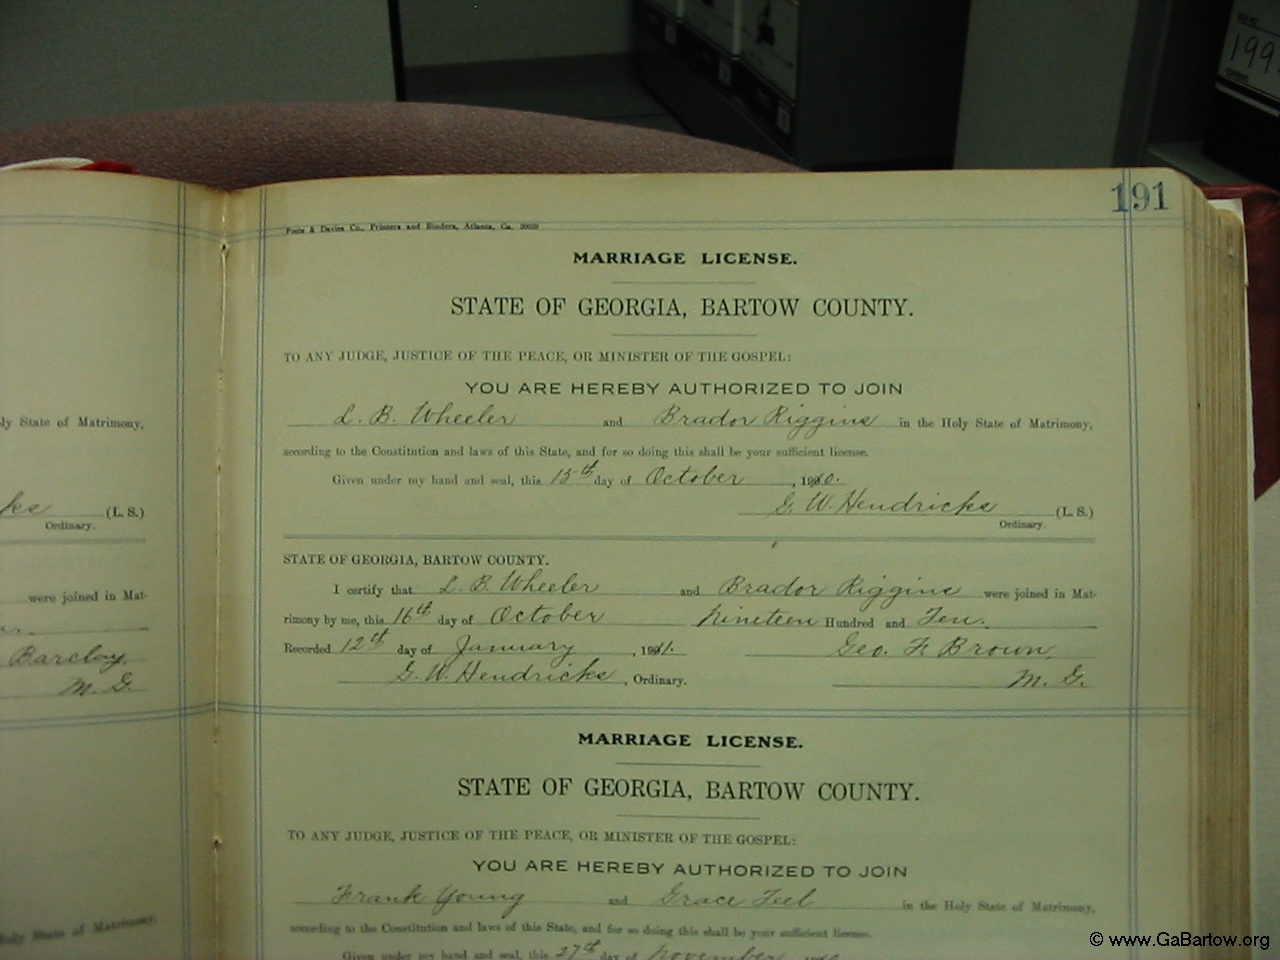 199
191
Foote & Davies Co., Printers and Binders, Atlanta, Ga.
MARRIAGE LICENSE.
STATE OF GEORGIA, BARTOW COUNTY.
TO ANY JUDGE, JUSTICE OF THE PEACE, OR MINISTER OF THE GOSPEL:
YOU ARE HEREBY AUTHORIZED TO JOIN
L. B. Wheeler and Brador Riggins in the Holy State of Matrimony,
according to the Constitution and laws of this State, and for so doing this shall be your sufficient license.
Given under my hand and seal, this 15th day of October, 1910.
G. W. Hendricks (L. S.)
Ordinary.
STATE OF GEORGIA, BARTOW COUNTY.
I certify that L. B. Wheeler and Brador Riggins were joined in Mat-
rimony by me, this 16th day of October Nineteen Hundred and Ten.
Recorded 12th day of January, 1911. Geo. F. Brown,
G. W. Hendricks, Ordinary. M. G.
MARRIAGE LICENSE.
STATE OF GEORGIA, BARTOW COUNTY.
TO ANY JUDGE, JUSTICE OF THE PEACE, OR MINISTER OF THE GOSPEL:
YOU ARE HEREBY AUTHORIZED TO JOIN
Frank Young and Grace Teel in the Holy State of Matrimony,
according to the Constitution and laws of this State, and for so doing this shall be your sufficient license.
Given under my hand and seal, this 27th day of November
ly State of Matrimony,
ks (L. S.)
Ordinary.
were joined in Mat-
Barclay,
M. G.
Holy State of Matrimony,
© www.GaBartow.org